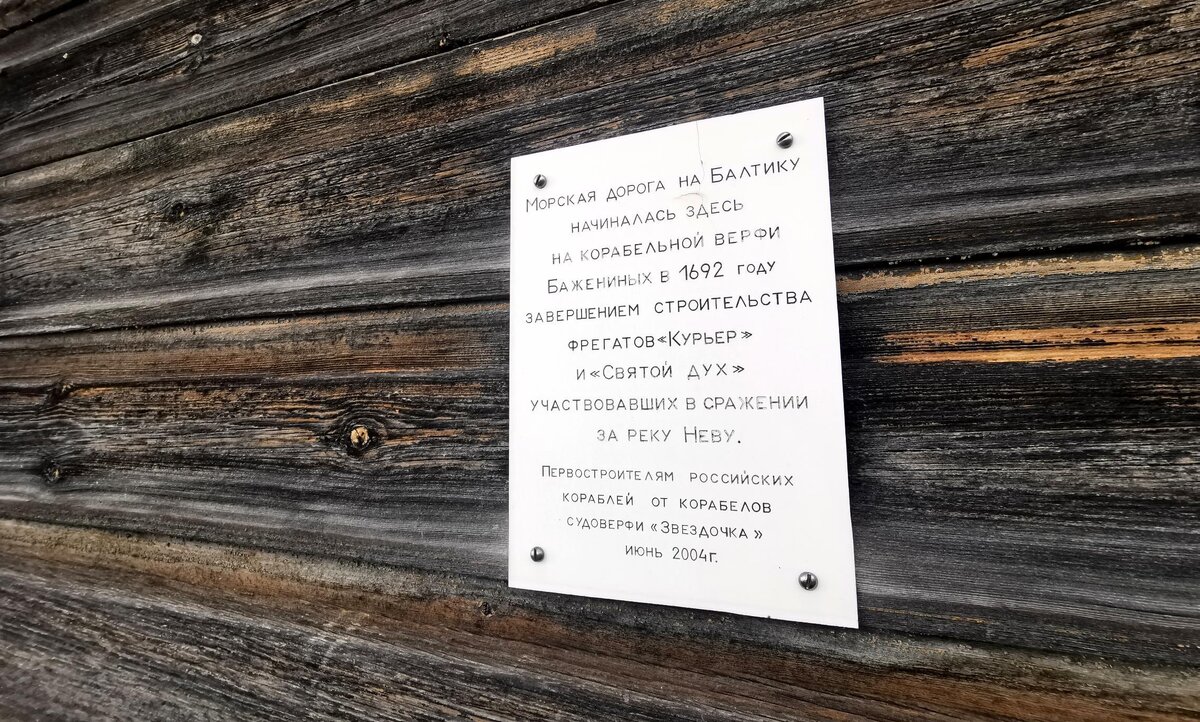 Морская дорога на Балтику
начиналась здесь
на корабельной верфи
Бажениных в 1692 году
завершением строительства
фрегатов «Курьер»
и «Святой дух»
участвовавших в сражении
за реку Неву.
Первостроителям российских
кораблей от корабелов
судоверфи «Звездочка»
июнь 2004г.